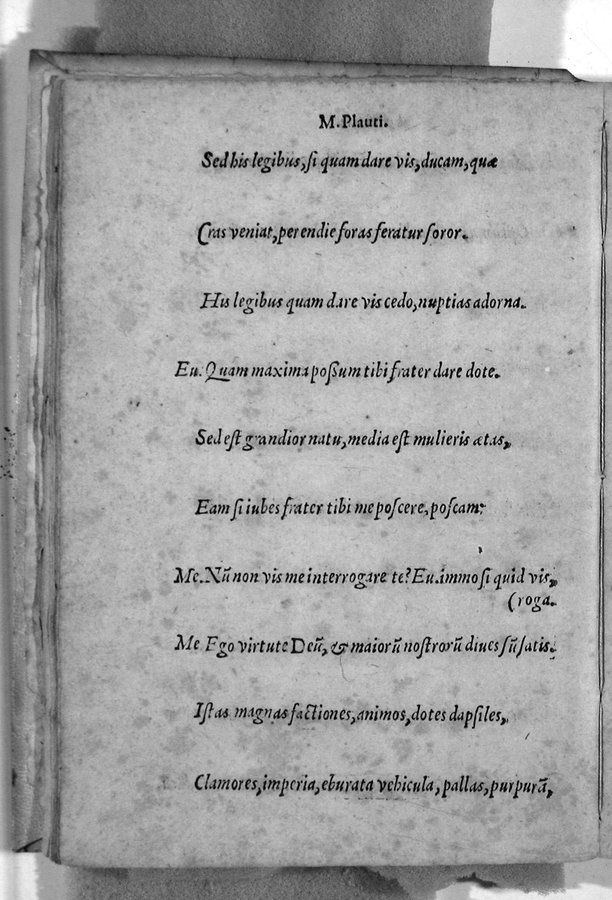 M.Plauti.
Sed his legibus, si quam dare vis, ducam, quæ
Cras veniat, perendie foras feratur soror.
His legibus quam dare vis cedo, nuptias adorna.
Eu. Quam maxima possum tibi frater dare dote.
Sed est grandior natu, media est mulieris ætas,
Eam si iubes frater tibi me poscere, poscam?
Me. Nũ non vis me interrogare te? Eu. immo si quid vis,
(roga.
Me Ego virtute Deũ, & maiorũ nostrorũ dives sũ satis.
Istas magnas factiones, animos, dotes dapsiles,
Clamores, imperia, eburata vehicula, pallas, purpurã,